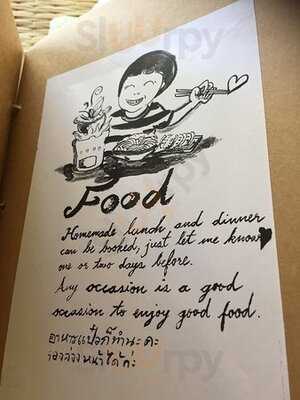 Sluurpy
Food
Homemade lunch, and dinner
can be booked, just let me know
one or two days before.
Any occasion is a good
occasion to enjoy good food.
อาหารแป๋วก็ทำนะคะ
จองล่วงหน้าได้ค่ะ